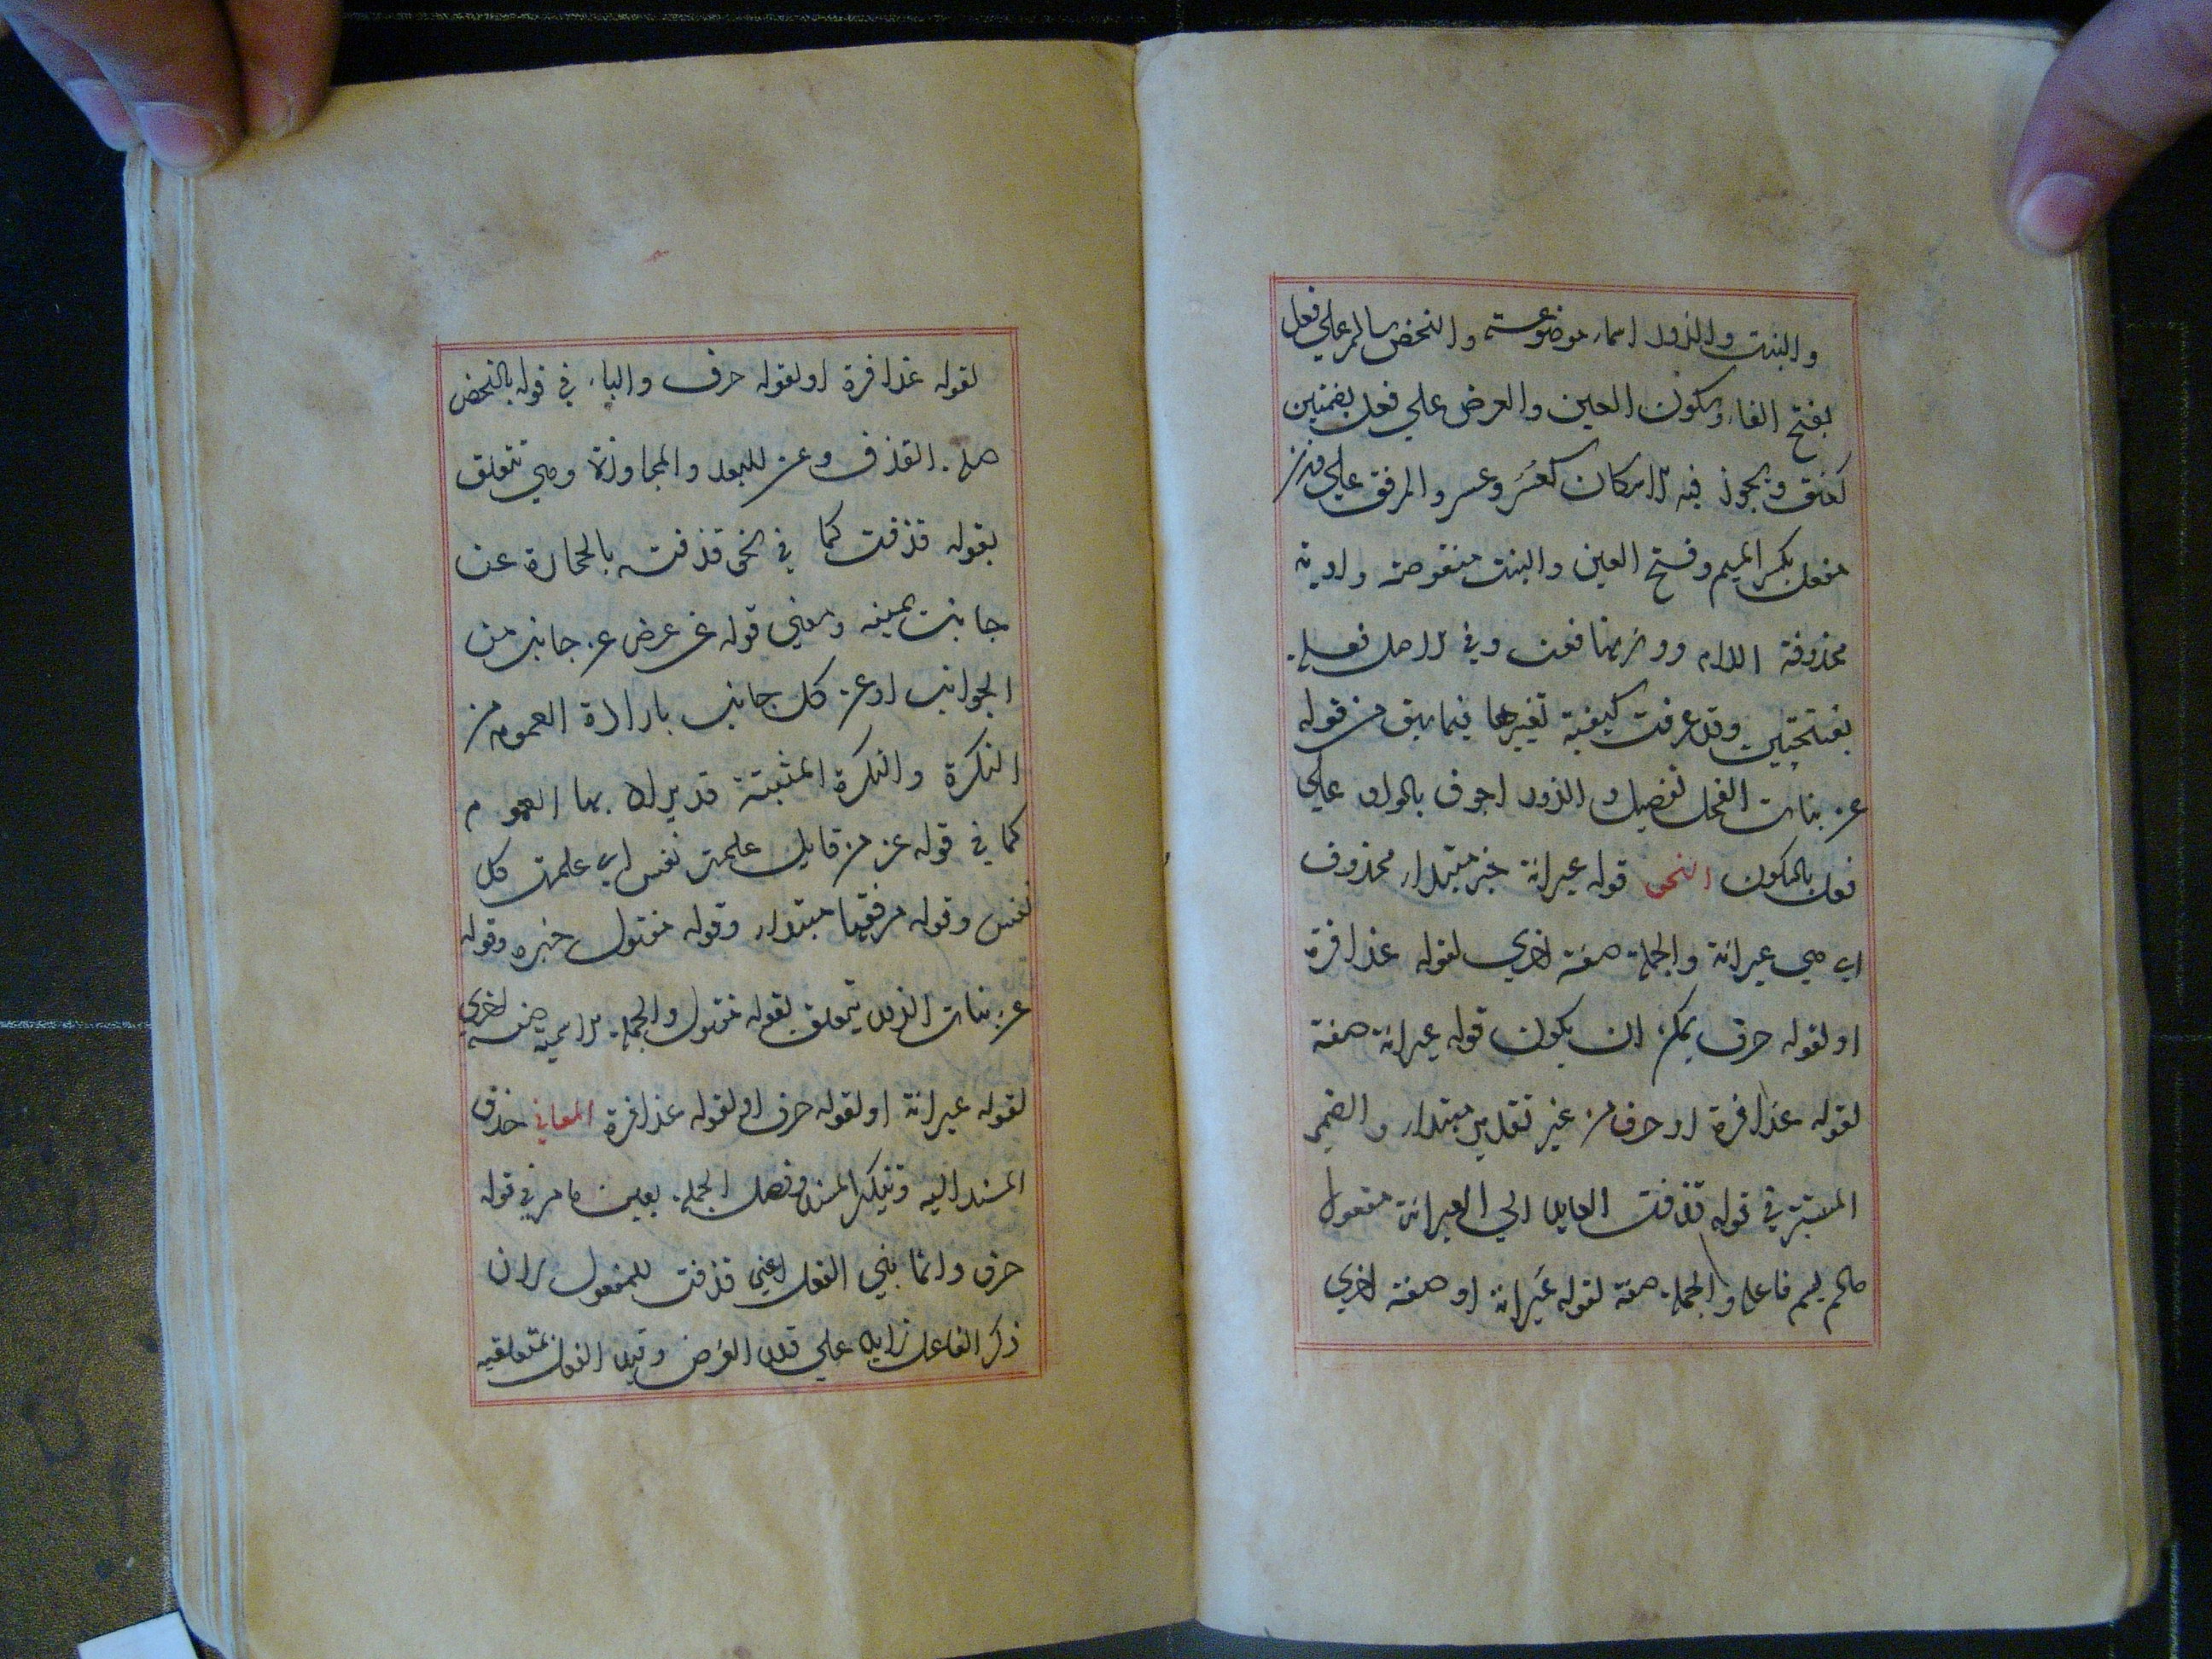 والبنت والزور اسماء موضوعة والنحض سالم علي فعل
بفتح الفاء وسكون العين والعرض علي فعل بضمتين
كعنق ويجوز فيه الاسكان كعسُر وعسر والمرفق علي
مفعل بكسر الميم وفتح العين والبنت منقوصة واوية
محذوفة اللام ووزنها فعت وفي الاصل فعلة
بفتحتين وقد عرفت كيفية تغييرها فيما سبق من قوله
عن بنات الفحل تفضيل والزور اجوف بالواو علي
فعل بالسكون النحو قوله عيرانة خبر مبتداء محذوف
اي هي عيرانة والجملة صفة اخري لقوله عذافرة
او لقوله حرف يمكن ان يكون قوله عيرانة صفة
لقوله عذافرة او حرف من غير تقدير مبتداء والضمير
المستتر في قوله قذفت العايد الي العيرانة مفعول
مالم يسم فاعله والجملة صفة لقوله عَيرانة او صفة اخري
لقوله عذافرة او لقوله حرف والباء في قوله بالنحض
صلة القذف وعن للبعد والمجاوزة وهي تتعلق
بقوله قذفت كما في نحو قذفت بالحجارة عن
جانب يمينه ومعني قوله عن عرض عن جانب من
الجوانب او عن كل جانب بارادة العموم من
النكرة والنكرة المثبتة قد يراد بها العموم
كما في قوله عز من قايل علمت نفس اي علمت كل
نفس وقوله مرفقها مبتداء وقوله مفتول خبره وقوله
عن بنات الزور يتعلق بقوله مفتول والجملة الاسمية صفة اخري
لقوله عيرانة او لقوله حرف او لقوله عذافرة المعاني حذف
المسند اليه وتنكير المسند وفصل الجملة بعين ما مر في قوله
حرف وانما بني الفعل اعني قذفت للمفعول لان
ذكر الفاعل زايد علي قدر الغرض وقيد الفعل بمتعلقيه